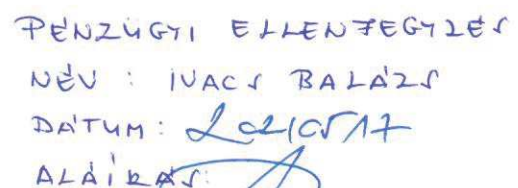 PÉNZÜGYI ELLENJEGYZÉS
NÉV : IVACS BALÁZS
DÁTUM: 2021/05/17
ALÁÍRÁS: